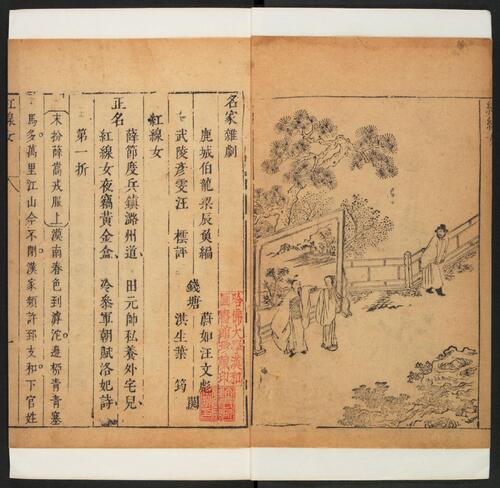 名家雜劇
鹿城伯龍梁辰魚編 錢塘 蔚如汪文彪 閱
武陵彥雯汪 橒評 洪生葉 筠
紅線女
正名
薛節度兵鎮潞州道 田元帥私養外宅兒
紅線女夜竊黃金盒 冷參軍朝賦洛妃詩
第一折
末扮薛嵩戎服上漠南春色到滹沱邊柳青青塞
馬多萬里江山今不閉漢家頻許郅支和下官姓
紅線女
哈佛大學漢和
圖書館珍藏印